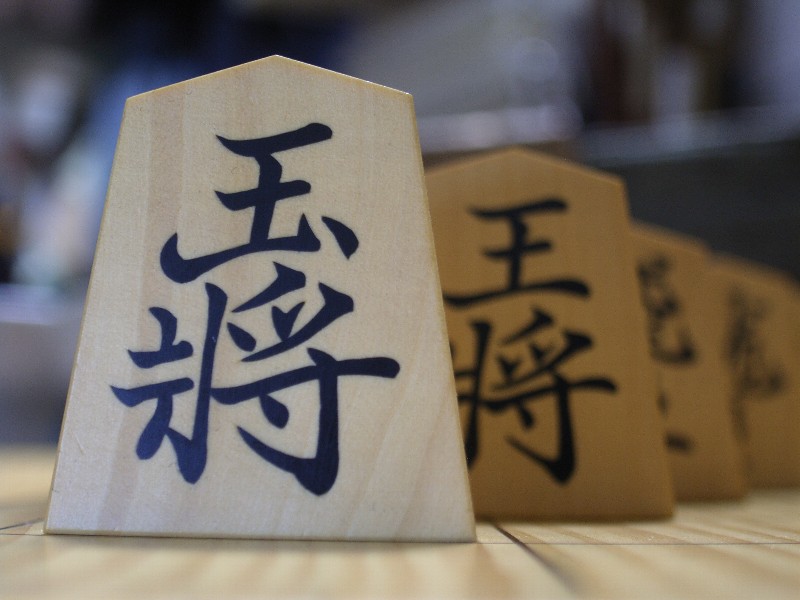 玉
將
王
將